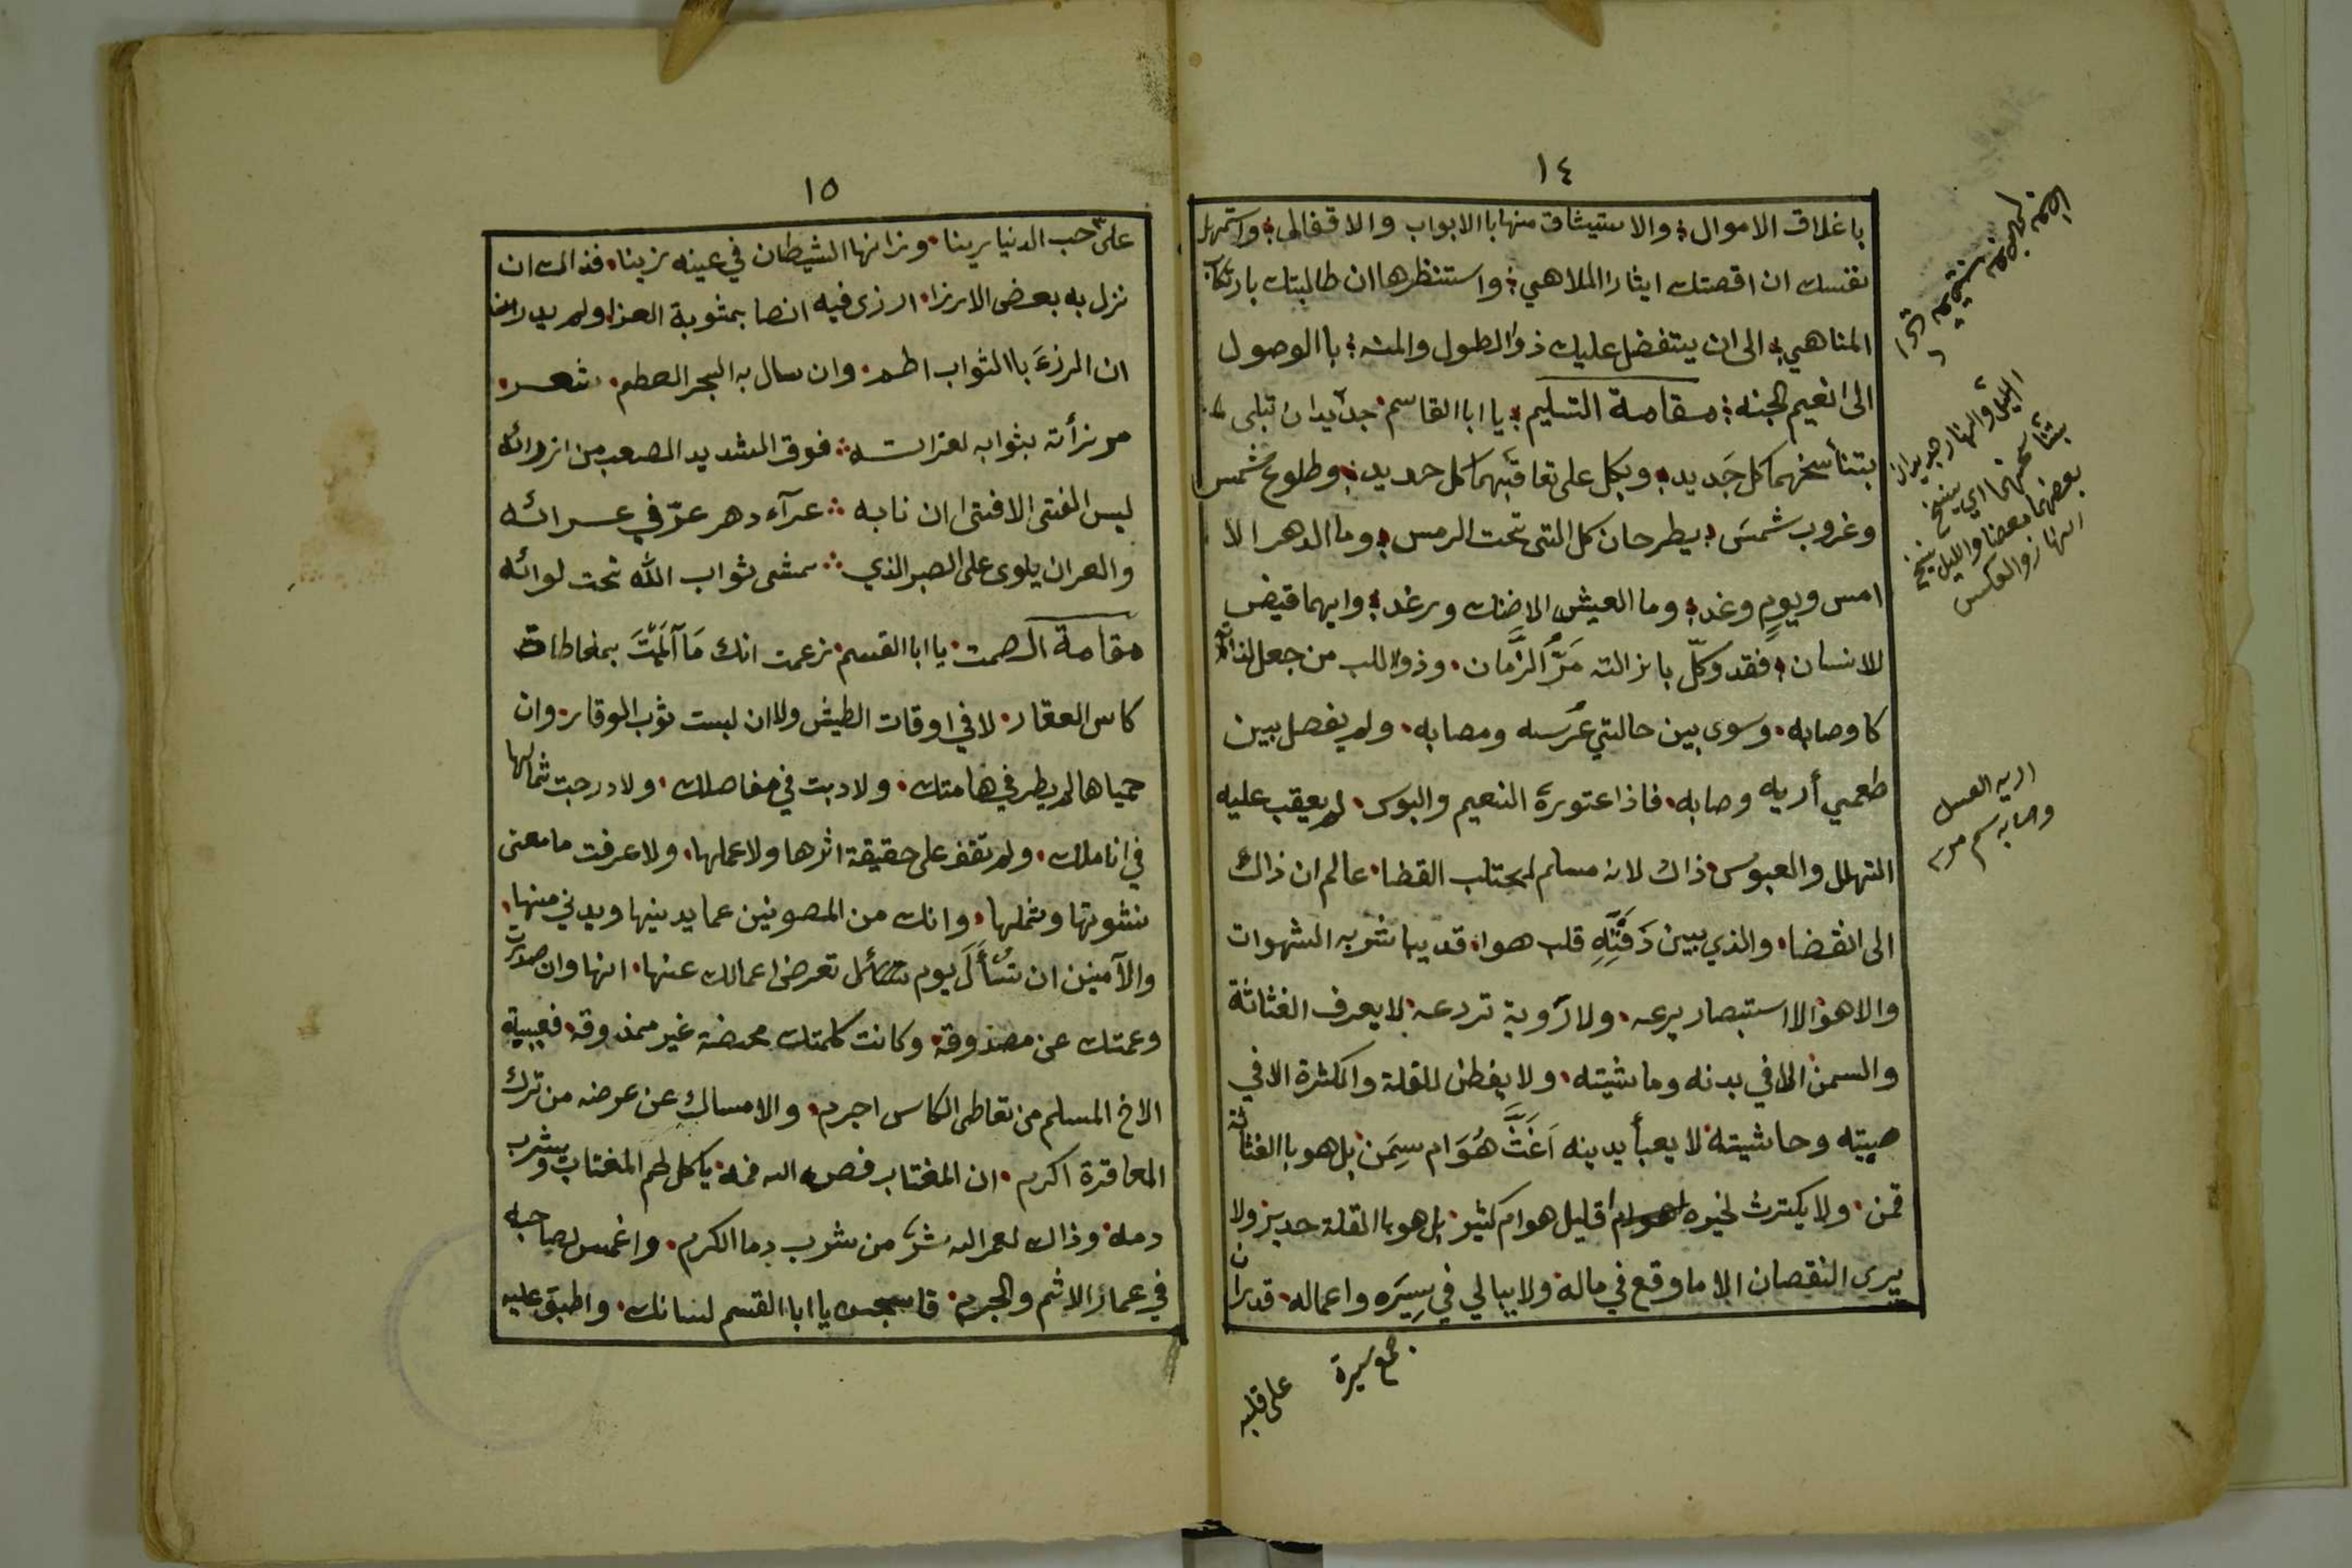 ١٤
باغلاق الاموال؛ والاستيثاق منها باالابواب والاقفالى؛ واستمهل
نفسك ان اقصتك ايثارا الملاهي؛ واستنظرها ان طالبتك بارتكاب
المناهي؛ الى ان يتفضل عليك ذو الطول والمنه؛ باالوصول
الى انعيم الجنه؛ مقامة التسليم؛ يا ابا القاسم؛ جديدان تبلى
بتناسخهما كل جَديد؛ وبكل على تعاقبهما كل حديد؛ وطلوع شمس
وغروب شمسَ؛ يطرحان كل التى تحت الرمس؛ وما الدهر الا
امس ويومٍ وغد؛ وما العيش الا ضنك ورغد؛ وايهما قيض
للانسان؛ فقد وكلّ بازالته مَرُّ الزَّمان، وذو اللب من جعل لذاته
كاوصابه، وسوى بين حالتي عُرسه ومصابه، ولم يفصل بين
طعمي أريه وصابه، فاذا عتوره النعيم والبوس، لم يعقب عليه
التهلل والعبوس، ذاك لانه مسلم لمجتلب القضا، عالم ان ذاك
الى انقضا، والذي بين دَفَّتَيْهِ قلب هوا، قد يما شربه الشهوات
والاهوا لا استبصار يرعه، ولا رَوية تردعه، لا يعرف الغثاثة
والسمن الا في بدنه وما شيته، ولا يفطن للقلة والكثرة الا في
صيته وحاشيته، لا يعبأ يدينه اَغَثَّ هُوَ ام سِمَن، بل هو باالغثاثة
قمن، ولا يكترث لخيره اقليل هو ام كثير، بل هو باالقلة جدير، ولا
يرى النقصان الا ما وقع في ماله، ولا يبالي في سِيَره واعماله، قد ران
جمع سيرة
على قلبه
الليل والنهار جديدان
بتناسخهما اي ينسخ
بعضهما بعضا والليل ينسخ
النهار والعكس
اريه العسل
وصابه سم مر
١٥
على حب الدنيا رينا، وزانها الشيطان في عينه زينا، فذالك ان
نزل به بعض الارزا، ارزى فيه انصا بمثوبة العزا، ولم يدر
ان الرزءَ باالثواب اطم، وان سال به البحر الغطم، شعر
مرزأته بثوابه لعزائه؛ فوق الشديد الصعب من ارزائه
ليس الفتى الا فتى ان نابه؛ عرآء دهر عدّ في عسرائه
والعران يلوى على الصبر الذي؛ يمشى ثواب الله تحت لوائه
مقامة الصمت، يا ابا القسم، زعمت انك مَا آلَمْتَ بمخاطات
كاس العقار، لا في اوقات الطيش ولا ان لبست ثوب الوقار، وان
حمياها لم يطر في هامتك، ولا دبت في مفاصلك، ولا درجت شمالها
في اناملك، ولم تقف على حقيقة اثرها ولا عملها، ولا عرفت ما معنى
نشوتها وثملها، وانك من المصونين عما يدينها ويدني منها،
والآمنين ان تُسأَلَ يوم تعرض اعمالك عنها، انها وان صدرت
وعمتك عن مصدوقة، وكانت كلمتك محضة غير ممذوقة، فعيبة
الاخ المسلم من تعاطى الكاس اجرم، والامساك عن عرضه من ترك
المعاقرة اكرم، ان المغتاب فض الله فمه، ياكل لحم المغتاب ويشرب
دمه، وذالك لعمر الله شرّ من شرب دما الكرم، واغمس لصاحبه
في غمار الاثم والجرم، فاسجن يا ابا القسم لسانك، واطبق عليه